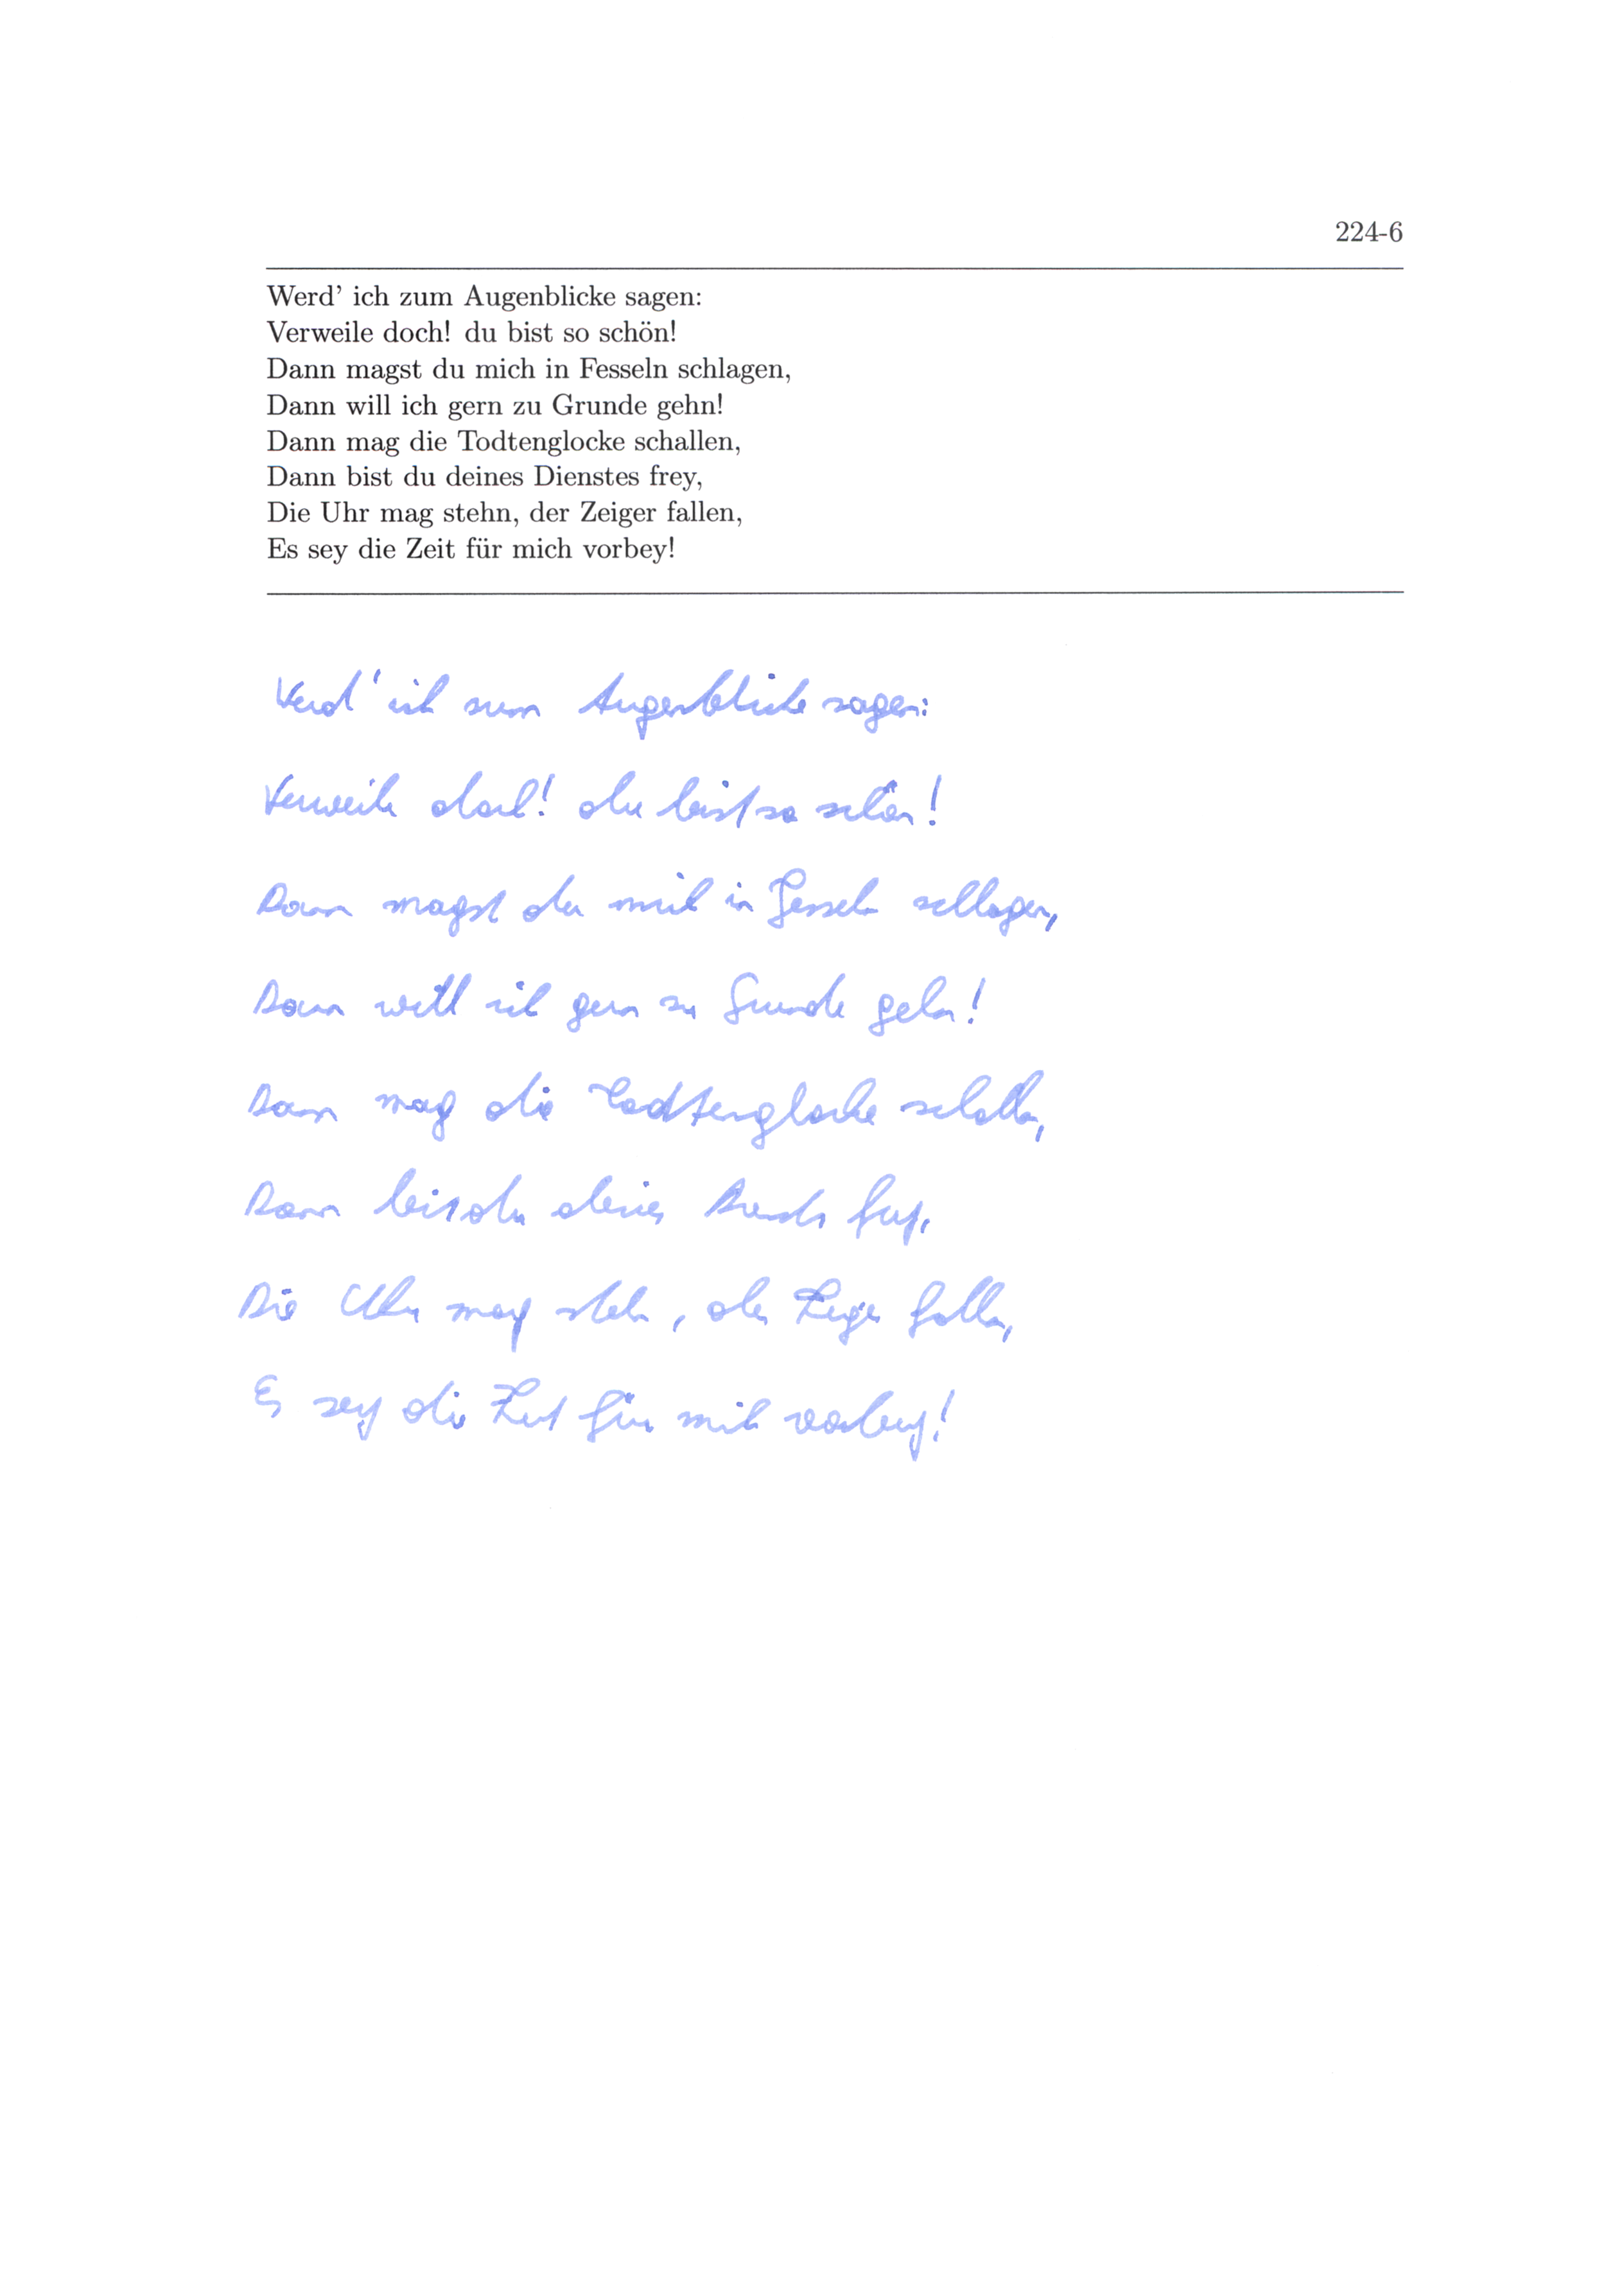 224-6
Werd' ich zum Augenblicke sagen:
Verweile doch! du bist so schön!
Dann magst du mich in Fesseln schlagen,
Dann will ich gern zu Grunde gehn!
Dann mag die Todtenglocke schallen,
Dann bist du deines Dienstes frey,
Die Uhr mag stehn, der Zeiger fallen,
Es sey die Zeit für mich vorbey!
Werd' ich zum Augenblicke sagen:
Verweile doch! du bist so schön!
Dann magst du mich in Fesseln schlagen,
Dann will ich gern zu Grunde gehn!
Dann mag die Todtenglocke schallen,
Dann bist du deines Dienstes frey,
Die Uhr mag stehn, der Zeiger fallen,
Es sey die Zeit für mich vorbey!